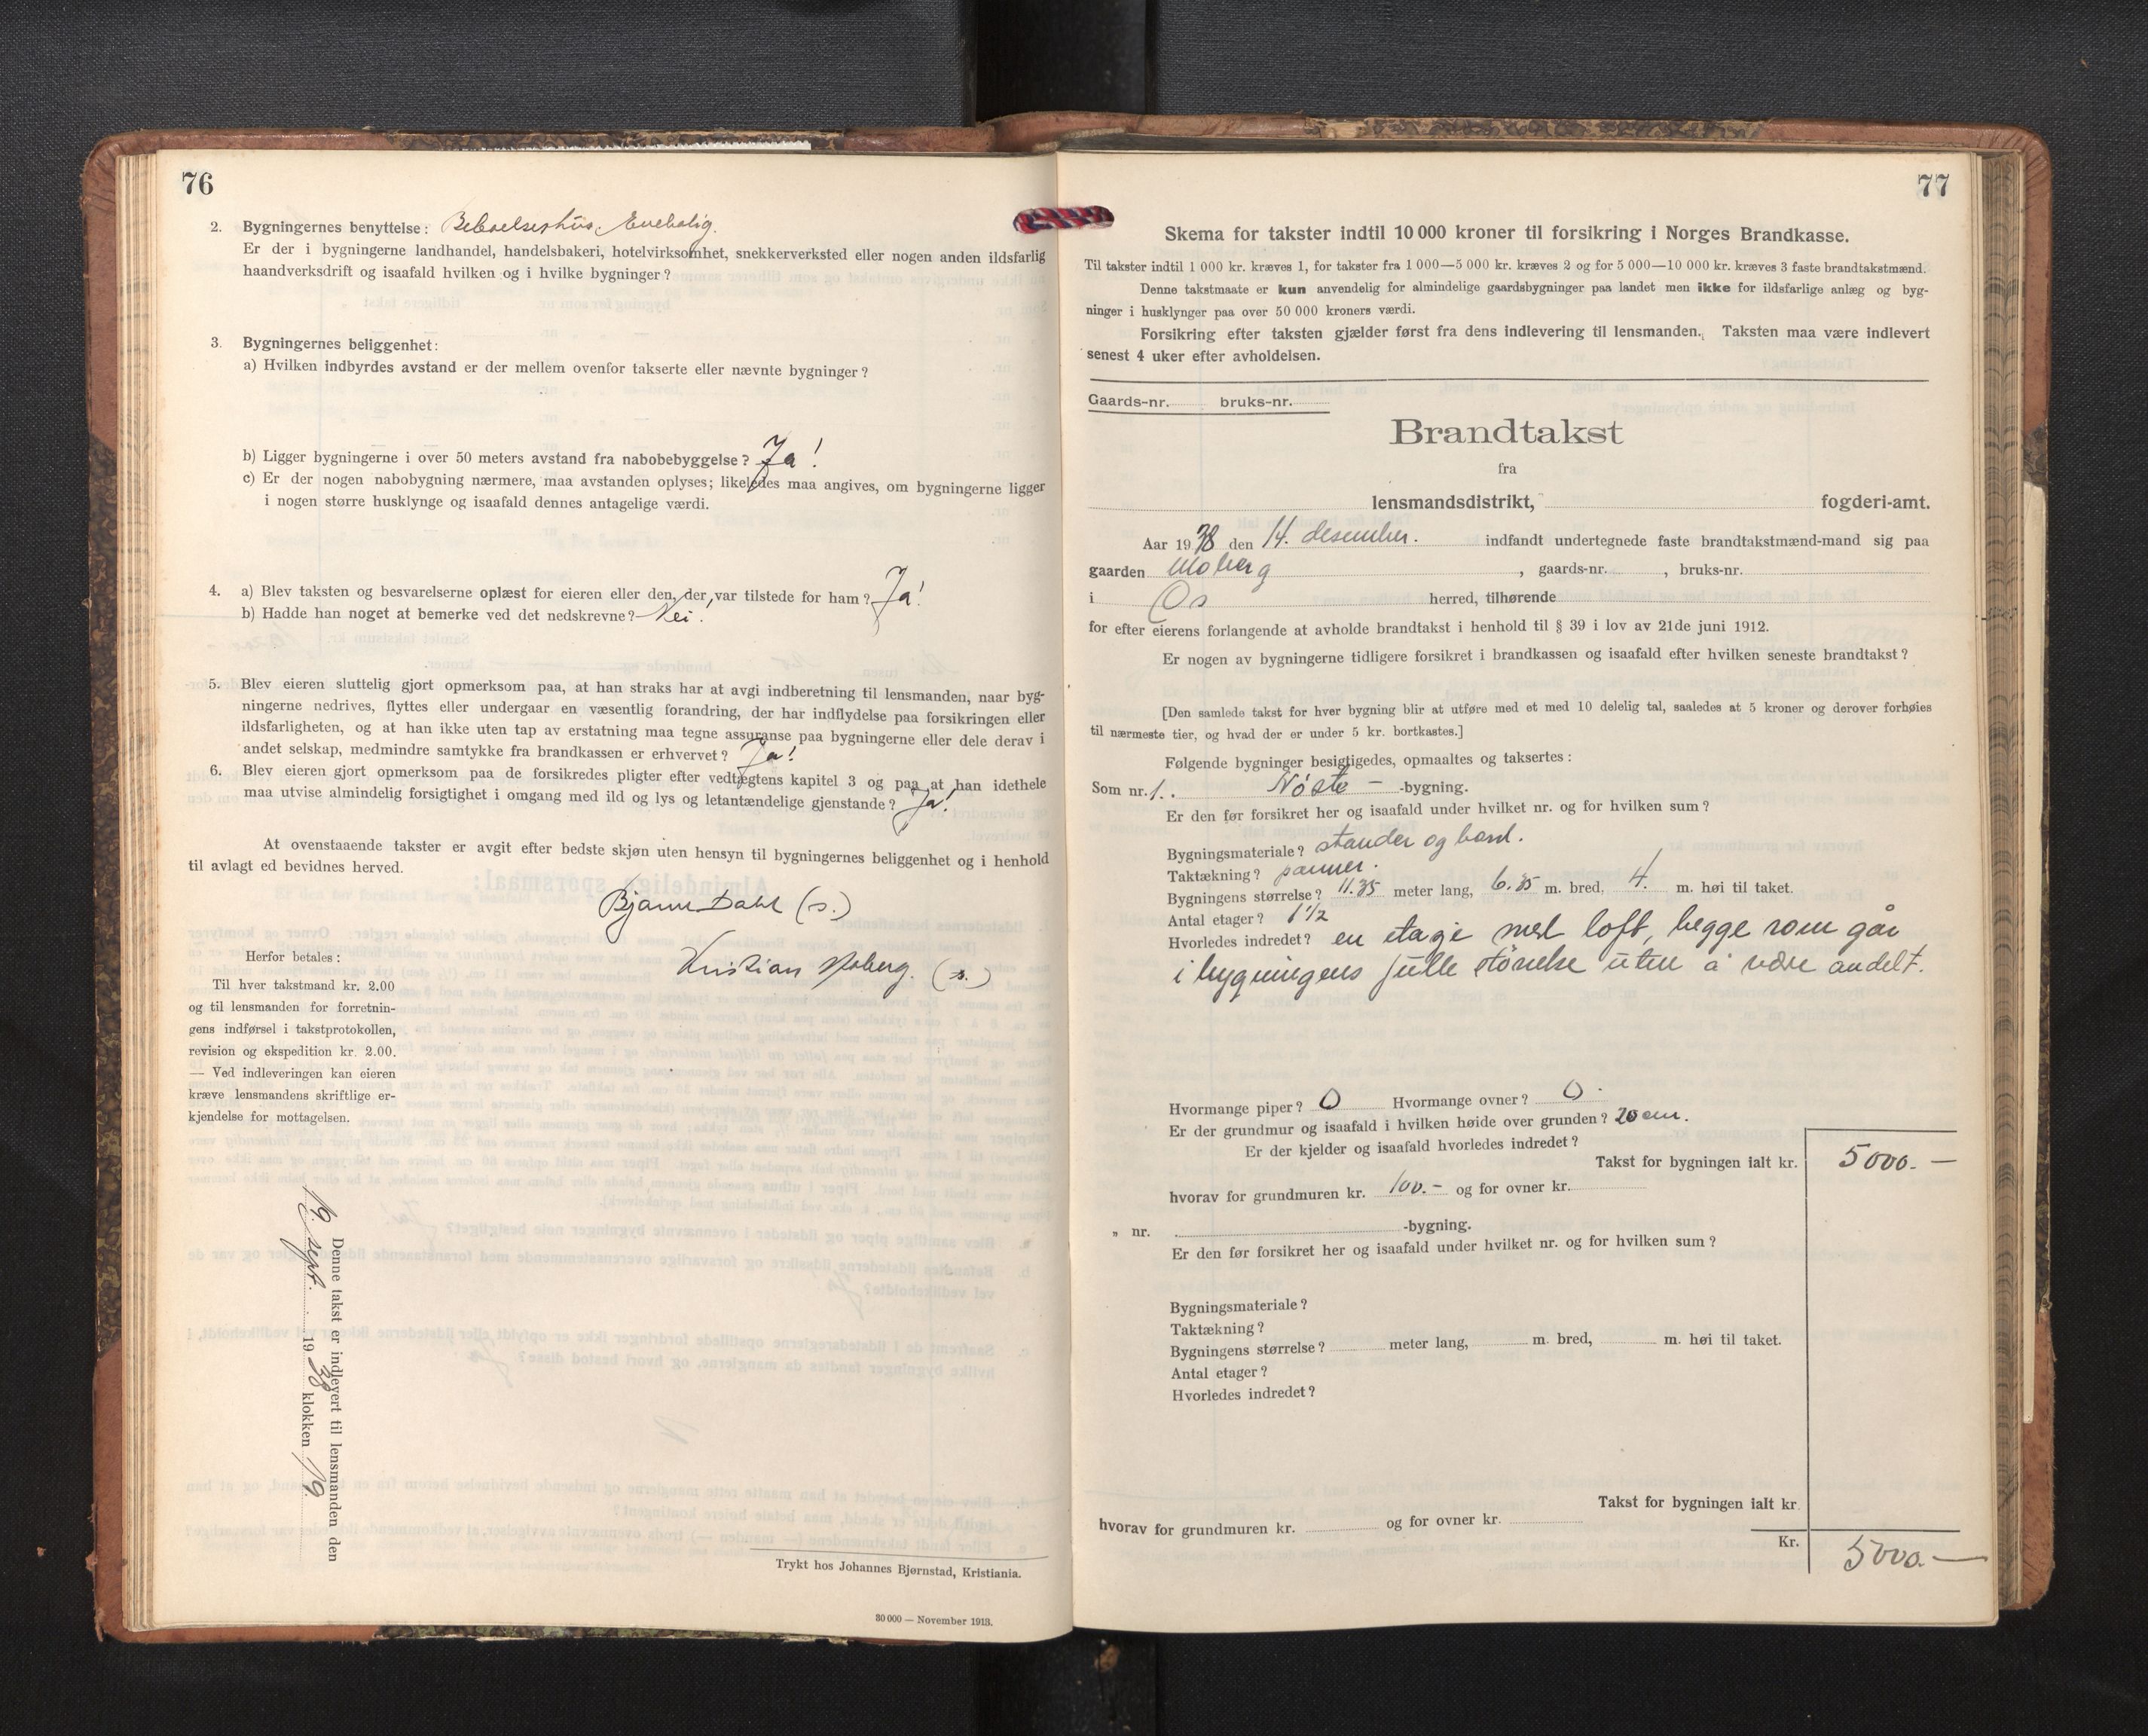 76
2. Bygningernes benyttelse: Beboelseshus, Enebolig.
Er der i bygningerne landhandel, handelsbakeri, hotelvirksomhet, snekkerverksted eller nogen anden ildsfarlig
haandverksdrift og isaafald hvilken og i hvilke bygninger?
3. Bygningernes beliggenhet:
a) Hvilken indbyrdes avstand er der mellem ovenfor takserte eller nævnte bygninger?
b) Ligger bygningerne i over 50 meters avstand fra nabobebyggelse? Ja!
c) Er der nogen nabobygning nærmere, maa avstanden oplyses; likeledes maa angives, om bygningerne ligger
i nogen større husklynge og isaafald dennes antagelige værdi.
4. a) Blev taksten og besvarelserne oplæst for eieren eller den, der var tilstede for ham? Ja!
b) Hadde han noget at bemerke ved det nedskrevne? Nei.
5. Blev eieren sluttelig gjort opmerksom paa, at han straks har at avgi indberetning til lensmanden, naar byg-
ningerne nedrives, flyttes eller undergaar en væsentlig forandring, der har indflydelse paa forsikringen eller
ildsfarligheten, og at han ikke uten tap av erstatning maa tegne assuranse paa bygningerne eller dele derav i
andet selskap, medmindre samtykke fra brandkassen er erhvervet? Ja!
6. Blev eieren gjort opmerksom paa de forsikredes pligter efter vedtægtens kapitel 3 og paa at han idethele
maa utvise almindelig forsigtighet i omgang med ild og lys og letantændelige gjenstande? Ja!
At ovenstaaende takster er avgit efter bedste skjøn uten hensyn til bygningernes beliggenhet og i henhold
til avlagt ed bevidnes herved.
Bjarne Dahl (s.)
Kristian Moberg. (s.)
Herfor betales:
Til hver takstmand kr. 2.00
og til lensmanden for forretnin-
gens indførsel i takstprotokollen,
revision og ekspedition kr. 2.00.
— Ved indleveringen kan eieren
kræve lensmandens skriftlige er-
kjendelse for mottagelsen.
Denne takst er indlevert til lensmanden den
19. sept. 1938 klokken 19.
Trykt hos Johannes Bjørnstad, Kristiania.
30 000 — November 1913.
77
Skema for takster indtil 10 000 kroner til forsikring i Norges Brandkasse.
Til takster indtil 1 000 kr. kræves 1, for takster fra 1 000—5 000 kr. kræves 2 og for 5 000—10 000 kr. kræves 3 faste brandtakstmænd.
Denne takstmaate er kun anvendelig for almindelige gaardsbygninger paa landet men ikke for ildsfarlige anlæg og byg-
ninger i husklynger paa over 50 000 kroners værdi.
Forsikring efter taksten gjælder først fra dens indlevering til lensmanden. Taksten maa være indlevert
senest 4 uker efter avholdelsen.
Gaards-nr. bruks-nr.
Brandtakst
fra
lensmandsdistrikt, fogderi-amt.
Aar 1938 den 14. desember. indfandt undertegnede faste brandtakstmænd-mand sig paa
gaarden Moberg, gaards-nr. , bruks-nr.
i Os herred, tilhørende
for efter eierens forlangende at avholde brandtakst i henhold til § 39 i lov av 21de juni 1912.
Er nogen av bygningerne tidligere forsikret i brandkassen og isaafald efter hvilken seneste brandtakst?
[Den samlede takst for hver bygning blir at utføre med et med 10 delelig tal, saaledes at 5 kroner og derover forhøies
til nærmeste tier, og hvad der er under 5 kr. bortkastes.]
Følgende bygninger besigtigedes, opmaaltes og taksertes:
Som nr. 1. Nøste -bygning.
Er den før forsikret her og isaafald under hvilket nr. og for hvilken sum?
Bygningsmateriale? stander og bord.
Taktækning? panner.
Bygningens størrelse? 11.35 meter lang, 6.35 m. bred, 4. m. høi til taket.
Antal etager? 1 1/2
Hvorledes indredet? en etasje med loft, begge rom går
i bygningens fulle størrelse uten å være andelt.
Hvormange piper? 0 Hvormange ovner? 0
Er der grundmur og isaafald i hvilken høide over grunden? 20 cm.
Er der kjelder og isaafald hvorledes indredet?
Takst for bygningen ialt kr. 5000.—
hvorav for grundmuren kr. 100.- og for ovner kr.
„ nr. -bygning.
Er den før forsikret her og isaafald under hvilket nr. og for hvilken sum?
Bygningsmateriale?
Taktækning?
Bygningens størrelse? meter lang, m. bred, m. høi til taket.
Antal etager?
Hvorledes indredet?
Takst for bygningen ialt kr
hvorav for grundmuren kr. og for ovner kr.
Kr. 5000.—